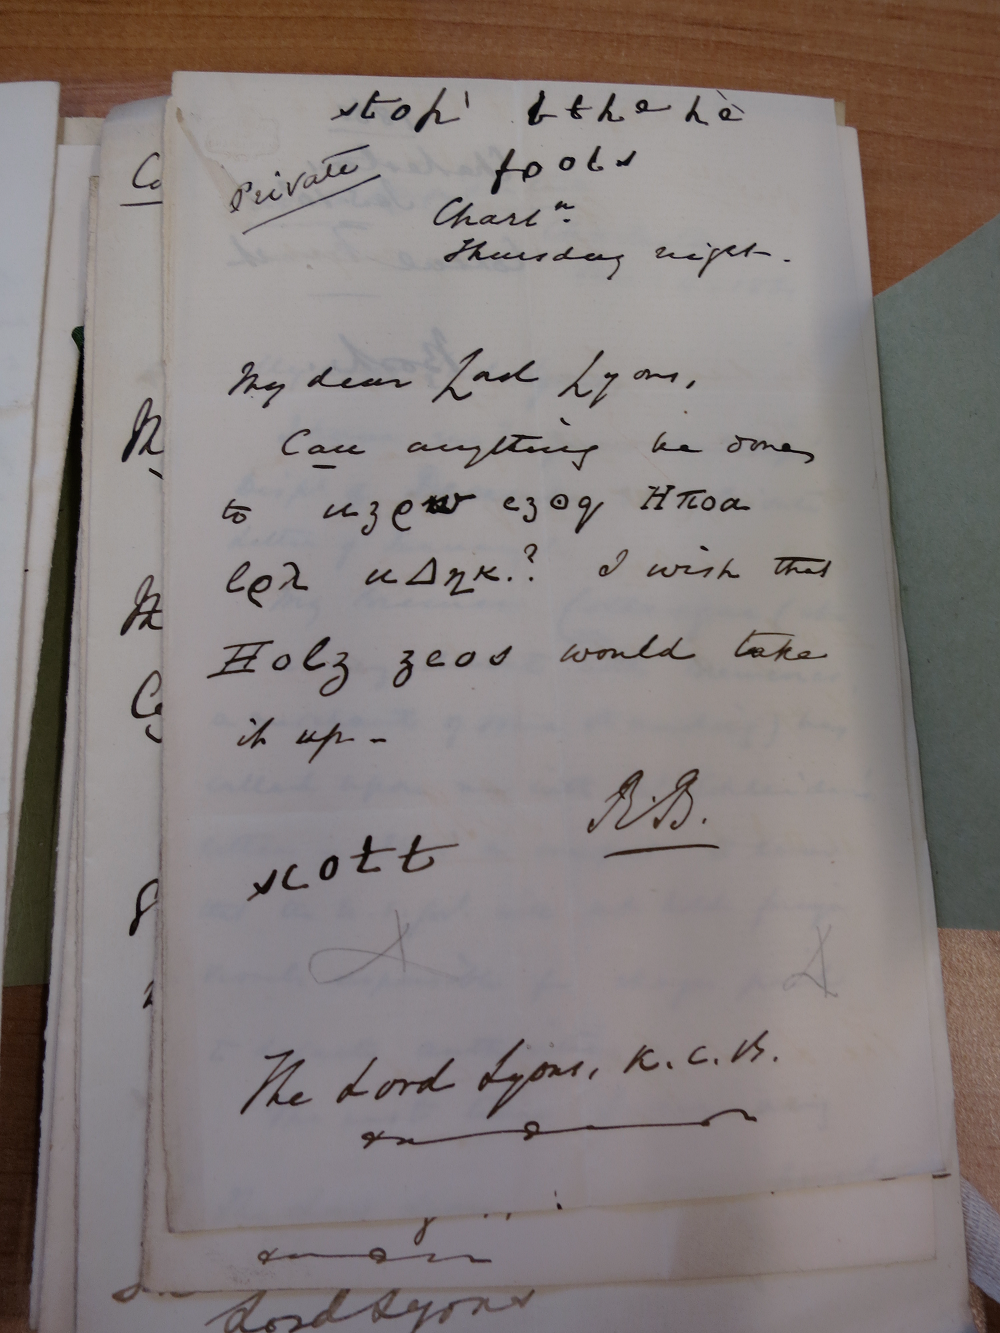 stop' tthe hè
fools
Private
Charlⁿ.
Thursday night.
My dear Lord Lyons,
Can anything be done
to иʒϱw εʒoq Hποα
lϱλ иΔηκ.? I wish that
Holʒ ʒeos would take
it up -
R.B.
scott
The Lord Lyons, K.C.B.
Lord Lyons